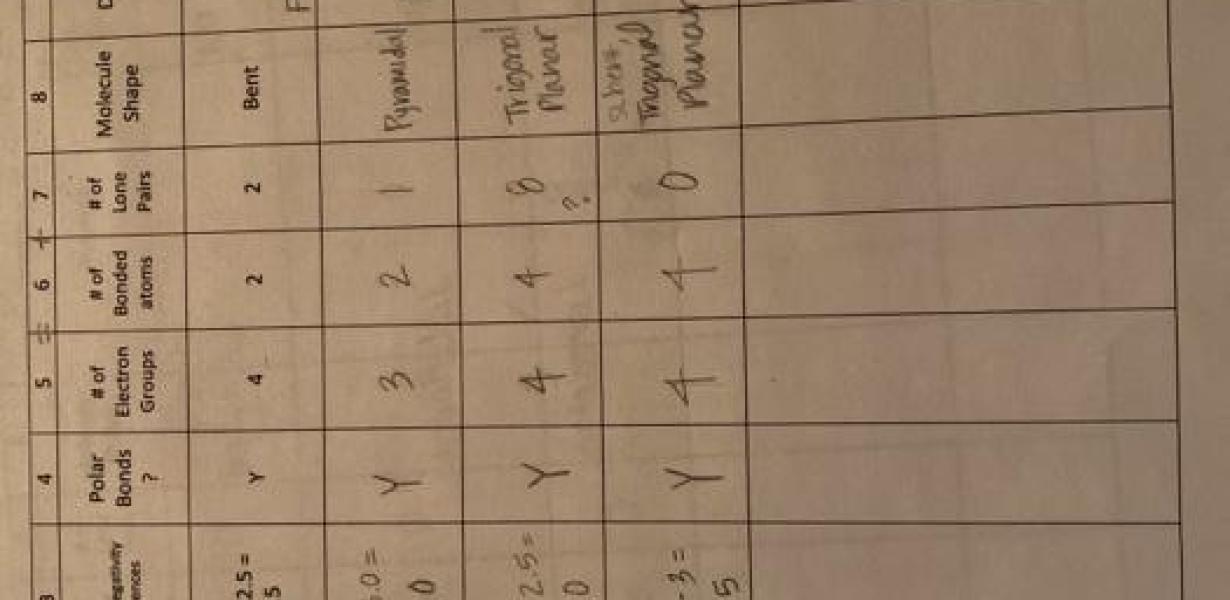 4 5 = 6 + 7 8
Polar
Bonds
?
# of
Electron
Groups
# of
Bonded
atoms
# of
Lone
Pairs
Molecule
Shape
2.5 =
5
Y
4
2
2
Bent
.0 =
0
Y
3
2
1
Pyramidal
2.5 =
0
Y
4
4
0
?
Trigonal
Planar
- 3 =
5
Y
4
4
0
Trigonal
Planar